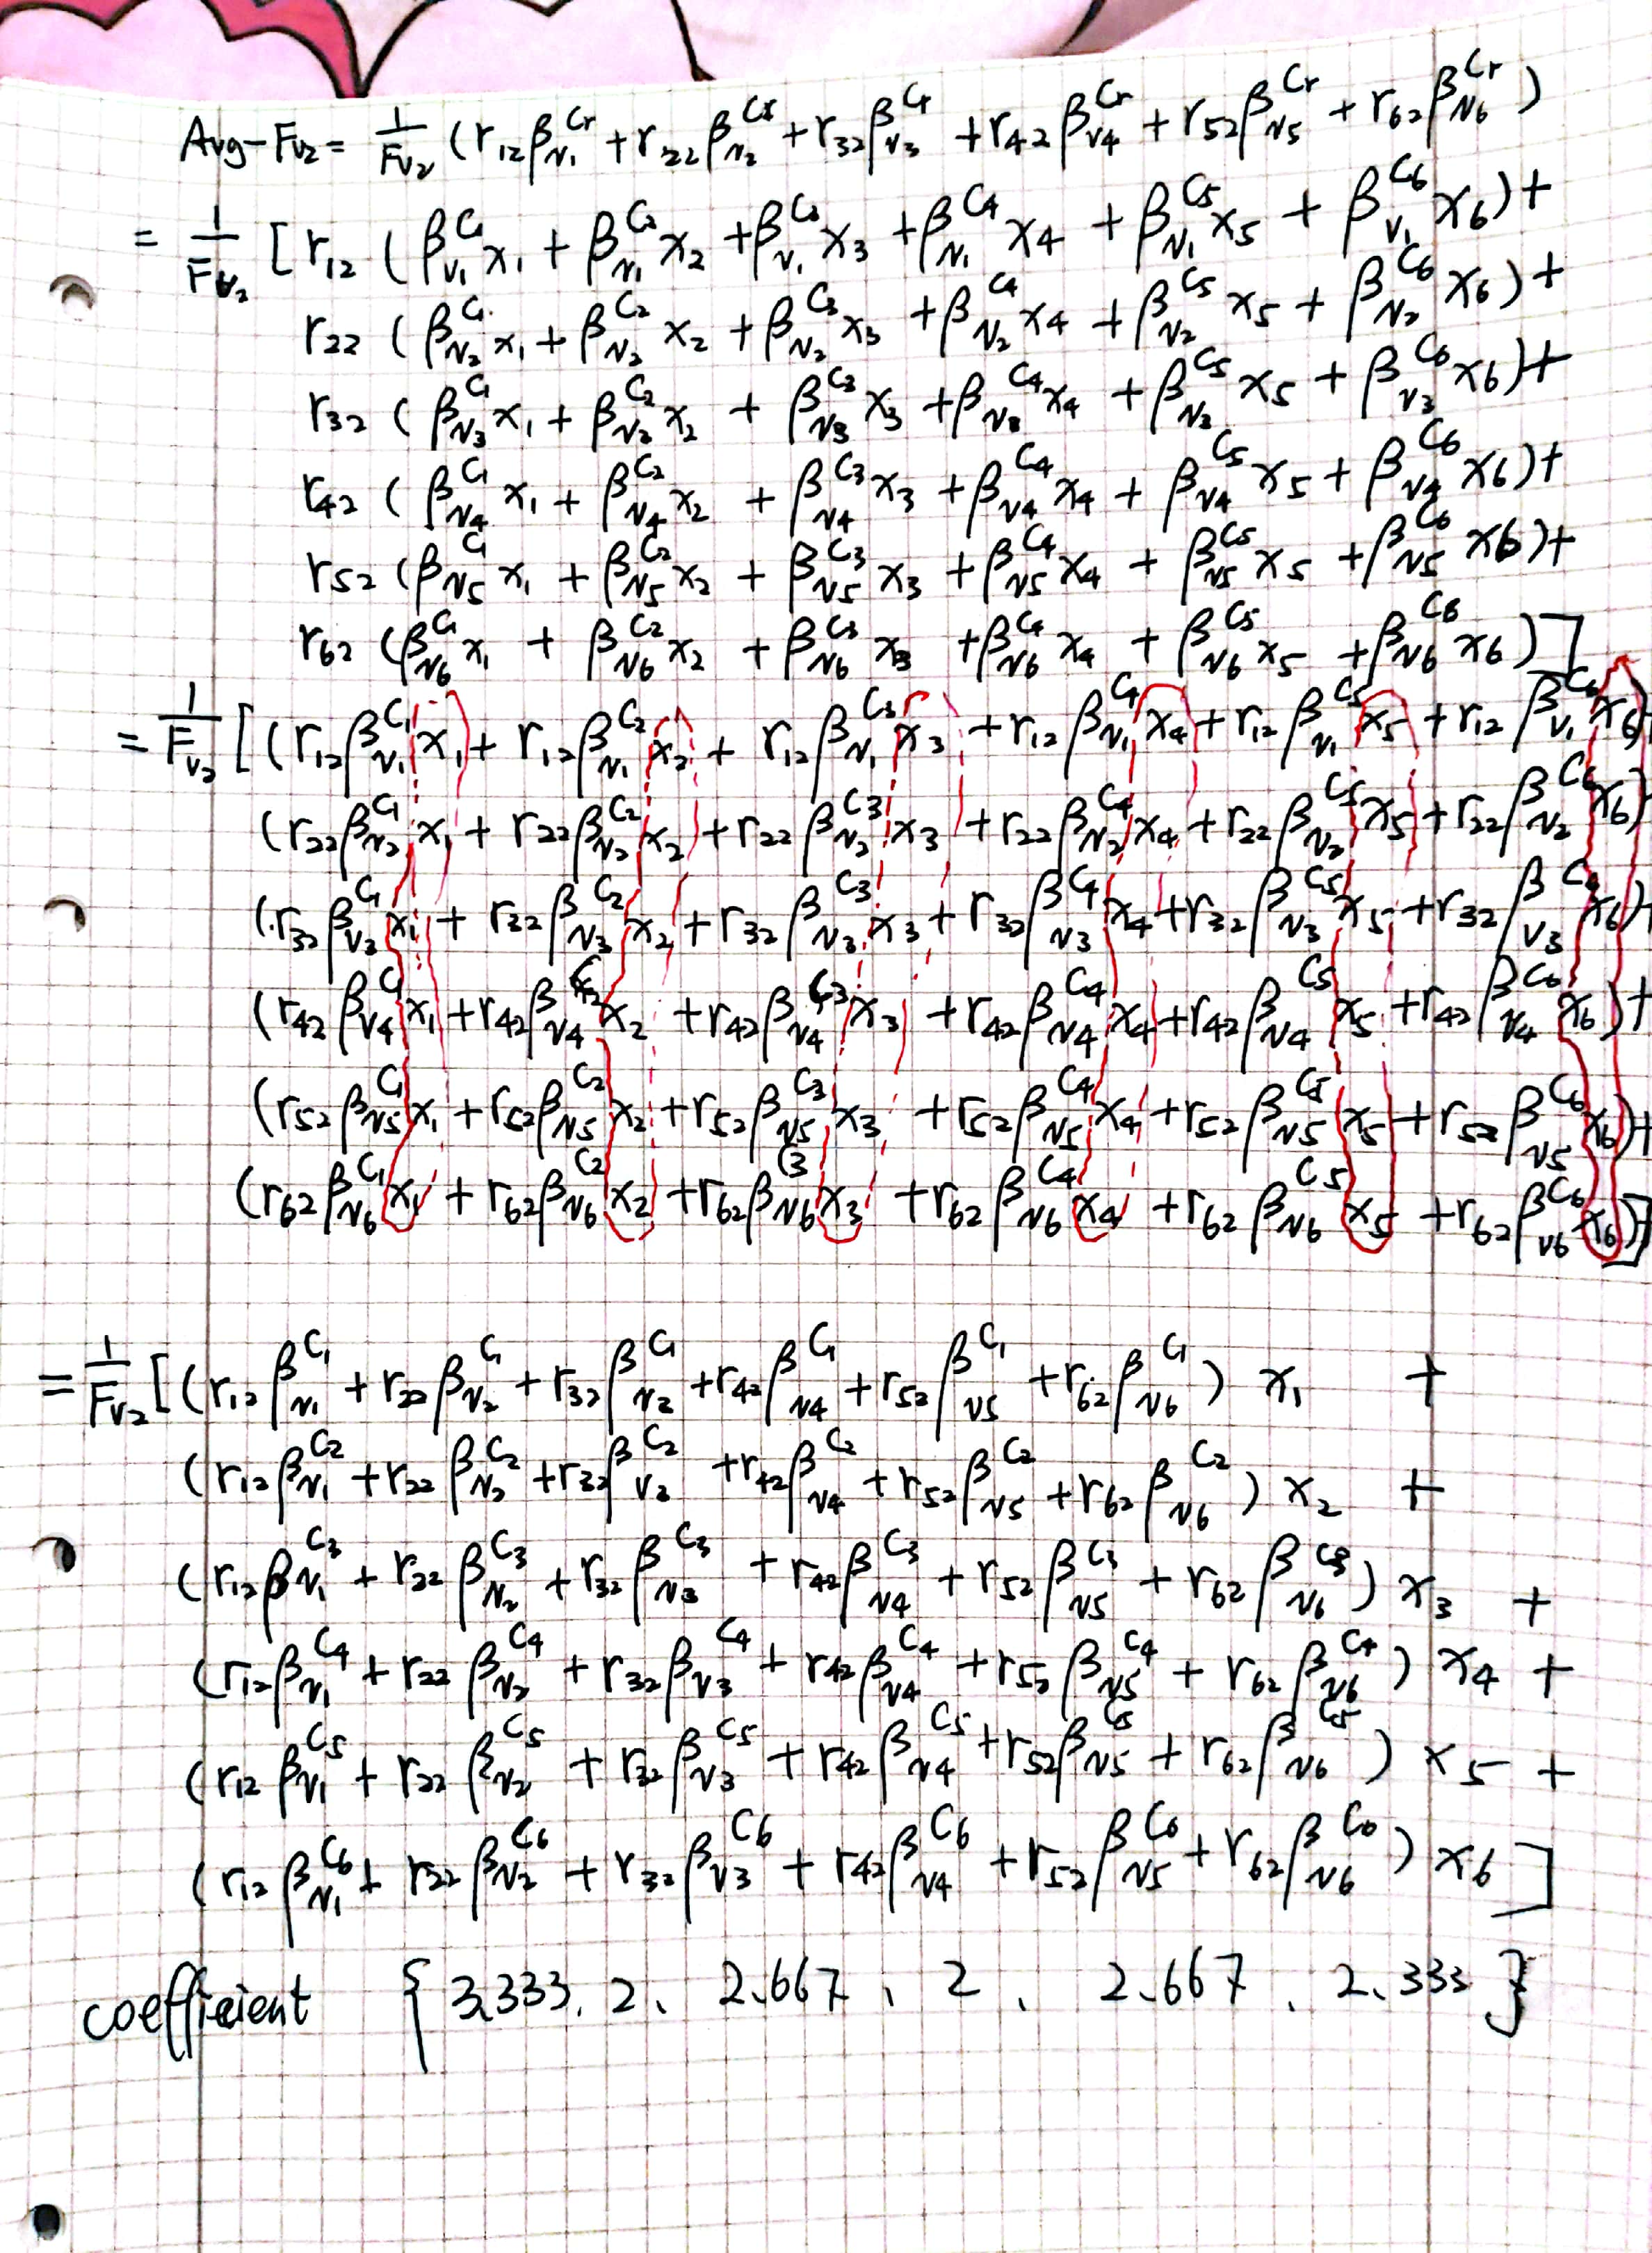 Avg-Fv2 = 1/Fv2 (r12 β_v1^Cr + r22 β_v2^Cr + r32 β_v3^Cr + r42 β_v4^Cr + r52 β_v5^Cr + r62 β_v6^Cr)
= 1/Fv2 [r12 (β_v1^C1 x1 + β_v1^C2 x2 + β_v1^C3 x3 + β_v1^C4 x4 + β_v1^C5 x5 + β_v1^C6 x6) +
r22 (β_v2^C1 x1 + β_v2^C2 x2 + β_v2^C3 x3 + β_v2^C4 x4 + β_v2^C5 x5 + β_v2^C6 x6) +
r32 (β_v3^C1 x1 + β_v3^C2 x2 + β_v3^C3 x3 + β_v3^C4 x4 + β_v3^C5 x5 + β_v3^C6 x6) +
r42 (β_v4^C1 x1 + β_v4^C2 x2 + β_v4^C3 x3 + β_v4^C4 x4 + β_v4^C5 x5 + β_v4^C6 x6) +
r52 (β_v5^C1 x1 + β_v5^C2 x2 + β_v5^C3 x3 + β_v5^C4 x4 + β_v5^C5 x5 + β_v5^C6 x6) +
r62 (β_v6^C1 x1 + β_v6^C2 x2 + β_v6^C3 x3 + β_v6^C4 x4 + β_v6^C5 x5 + β_v6^C6 x6)]
= 1/Fv2 [(r12 β_v1^C1 x1 + r12 β_v1^C2 x2 + r12 β_v1^C3 x3 + r12 β_v1^C4 x4 + r12 β_v1^C5 x5 + r12 β_v1^C6 x6) +
(r22 β_v2^C1 x1 + r22 β_v2^C2 x2 + r22 β_v2^C3 x3 + r22 β_v2^C4 x4 + r22 β_v2^C5 x5 + r22 β_v2^C6 x6)
(r32 β_v3^C1 x1 + r32 β_v3^C2 x2 + r32 β_v3^C3 x3 + r32 β_v3^C4 x4 + r32 β_v3^C5 x5 + r32 β_v3^C6 x6) +
(r42 β_v4^C1 x1 + r42 β_v4^C2 x2 + r42 β_v4^C3 x3 + r42 β_v4^C4 x4 + r42 β_v4^C5 x5 + r42 β_v4^C6 x6) +
(r52 β_v5^C1 x1 + r52 β_v5^C2 x2 + r52 β_v5^C3 x3 + r52 β_v5^C4 x4 + r52 β_v5^C5 x5 + r52 β_v5^C6 x6) +
(r62 β_v6^C1 x1 + r62 β_v6^C2 x2 + r62 β_v6^C3 x3 + r62 β_v6^C4 x4 + r62 β_v6^C5 x5 + r62 β_v6^C6 x6)]
= 1/Fv2 [(r12 β_v1^C1 + r22 β_v2^C1 + r32 β_v3^C1 + r42 β_v4^C1 + r52 β_v5^C1 + r62 β_v6^C1) x1 +
(r12 β_v1^C2 + r22 β_v2^C2 + r32 β_v3^C2 + r42 β_v4^C2 + r52 β_v5^C2 + r62 β_v6^C2) x2 +
(r12 β_v1^C3 + r22 β_v2^C3 + r32 β_v3^C3 + r42 β_v4^C3 + r52 β_v5^C3 + r62 β_v6^C3) x3 +
(r12 β_v1^C4 + r22 β_v2^C4 + r32 β_v3^C4 + r42 β_v4^C4 + r52 β_v5^C4 + r62 β_v6^C4) x4 +
(r12 β_v1^C5 + r22 β_v2^C5 + r32 β_v3^C5 + r42 β_v4^C5 + r52 β_v5^C5 + r62 β_v6^C5) x5 +
(r12 β_v1^C6 + r22 β_v2^C6 + r32 β_v3^C6 + r42 β_v4^C6 + r52 β_v5^C6 + r62 β_v6^C6) x6]
coefficient { 3.333、2、2.667、2、2.667、2.333 }